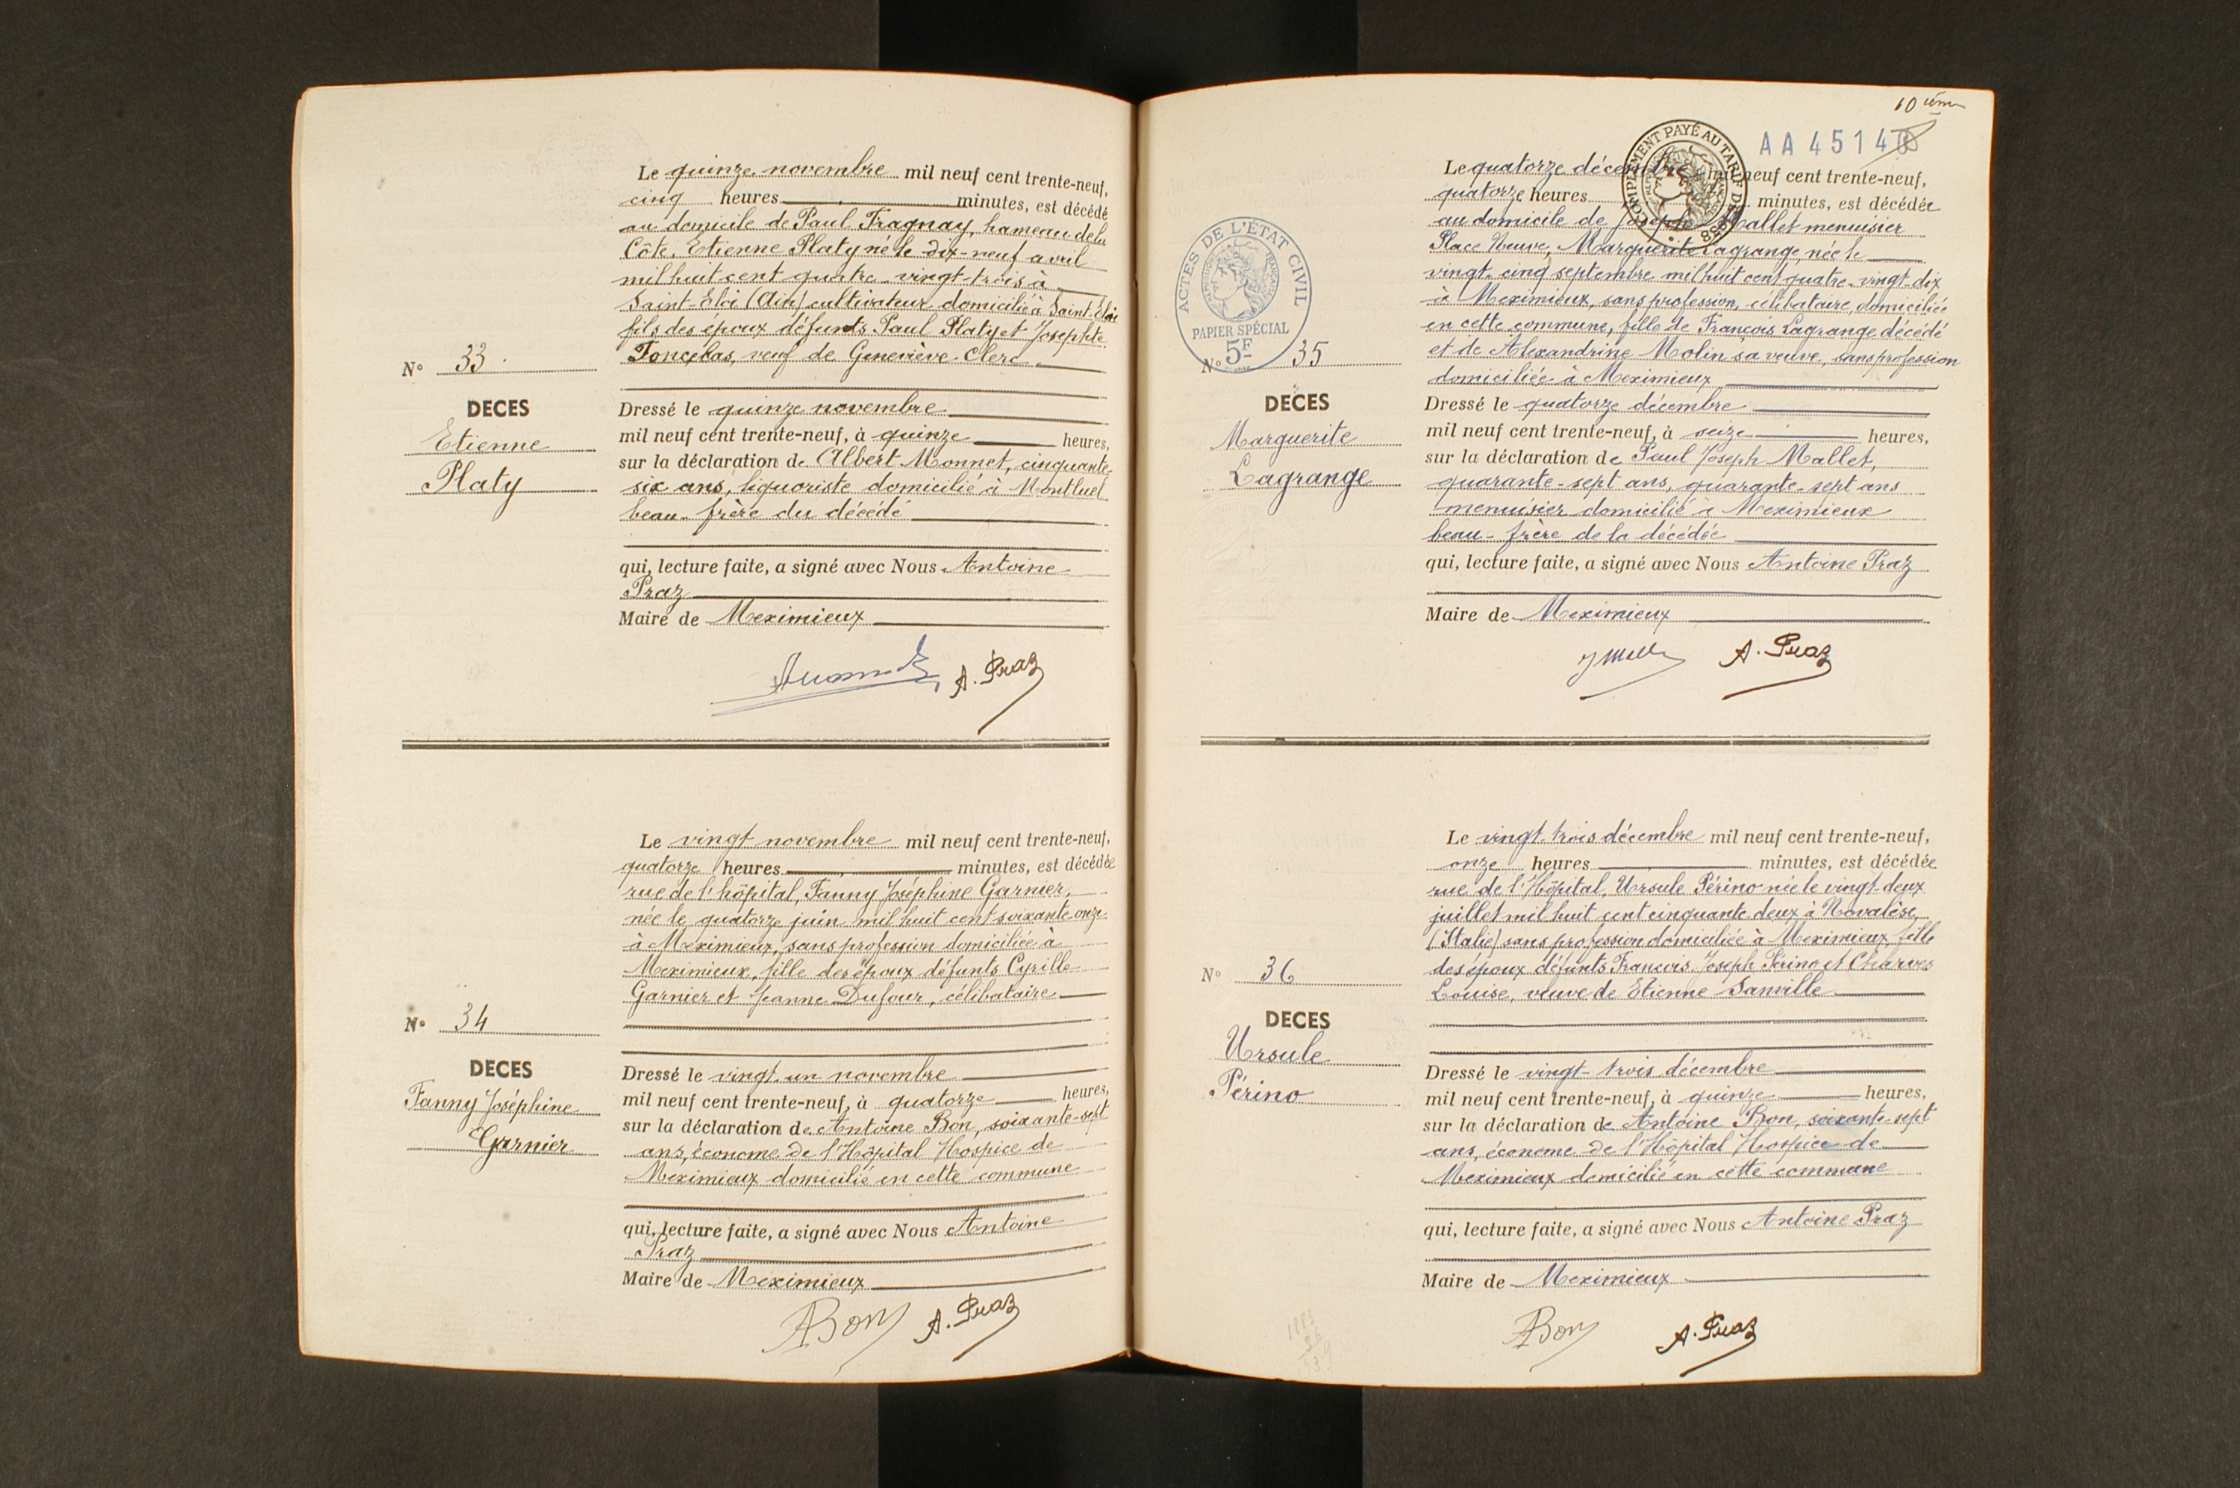 Le quinze novembre mil neuf cent trente-neuf,
cinq heures minutes, est décédé
au domicile de Paul Fragnay, hameau de la
Côte, Etienne Platy né le dix-neuf avril
mil huit cent quatre-vingt-trois à
Saint-Eloi (Ain) cultivateur domicilié à Saint-Eloi
fils des époux défunts Paul Platy et Josephte
veuf de Geneviève Clerc
N° 33
DECES
Etienne
Platy
Dressé le quinze novembre
mil neuf cent trente-neuf, à quinze heures,
sur la déclaration de Albert Monnet, cinquante-
six ans, liquoriste domicilié à Montluel
beau-frère du décédé
qui, lecture faite, a signé avec Nous Antoine
Praz
Maire de Meximieux
A. Praz
Le vingt novembre mil neuf cent trente-neuf,
quatorze heures minutes, est décédée
rue de l'hôpital, Fanny Joséphine Garnier,
née le quatorze juin mil huit cent soixante onze
à Meximieux, sans profession domiciliée à
Meximieux, fille des époux défunts Cyrille
Garnier et Jeanne Dufour, célibataire
N° 34
DECES
Fanny Joséphine
Garnier
Dressé le vingt-un novembre
mil neuf cent trente-neuf, à quatorze heures,
sur la déclaration de Antoine Bon, soixante-sept
ans, économe de l'Hôpital Hospice de
Meximieux domicilié en cette commune
qui, lecture faite, a signé avec Nous Antoine
Praz
Maire de Meximieux
ABon A. Praz
10 ième
AA 4514
COMPLEMENT PAYÉ AU TARIF DE
ACTES DE L'ÉTAT CIVIL
PAPIER SPÉCIAL
5F
Le quatorze décembre mil neuf cent trente-neuf,
quatorze heures minutes, est décédée
au domicile de Joseph Mallet menuisier
Place Neuve, Marguerite Lagrange, née le
vingt-cinq septembre mil huit cent quatre-vingt-dix
à Meximieux, sans profession, célibataire, domiciliée
en cette commune, fille de François Lagrange décédé
et de Alexandrine Molin sa veuve, sans profession
domiciliée à Meximieux
N° 35
DECES
Marguerite
Lagrange
Dressé le quatorze décembre
mil neuf cent trente-neuf, à seize heures,
sur la déclaration de Paul Joseph Mallet,
quarante-sept ans, quarante-sept ans
menuisier domicilié à Meximieux
beau-frère de la décédée
qui, lecture faite, a signé avec Nous Antoine Praz
Maire de Meximieux
A. Praz
Le vingt-trois décembre mil neuf cent trente-neuf,
onze heures minutes, est décédée
rue de l'Hôpital, Ursule Périno née le vingt-deux
juillet mil huit cent cinquante deux à Novalèse
(Italie) sans profession domiciliée à Meximieux, fille
des époux défunts François Joseph Périno et Charves
Louise, veuve de Etienne Sanville
N° 36
DECES
Ursule
Périno
Dressé le vingt-trois décembre
mil neuf cent trente-neuf, à quinze heures,
sur la déclaration de Antoine Bon, soixante-sept
ans, économe de l'Hôpital Hospice de
Meximieux domicilié en cette commune
qui, lecture faite, a signé avec Nous Antoine Praz
Maire de Meximieux
ABon A. Praz